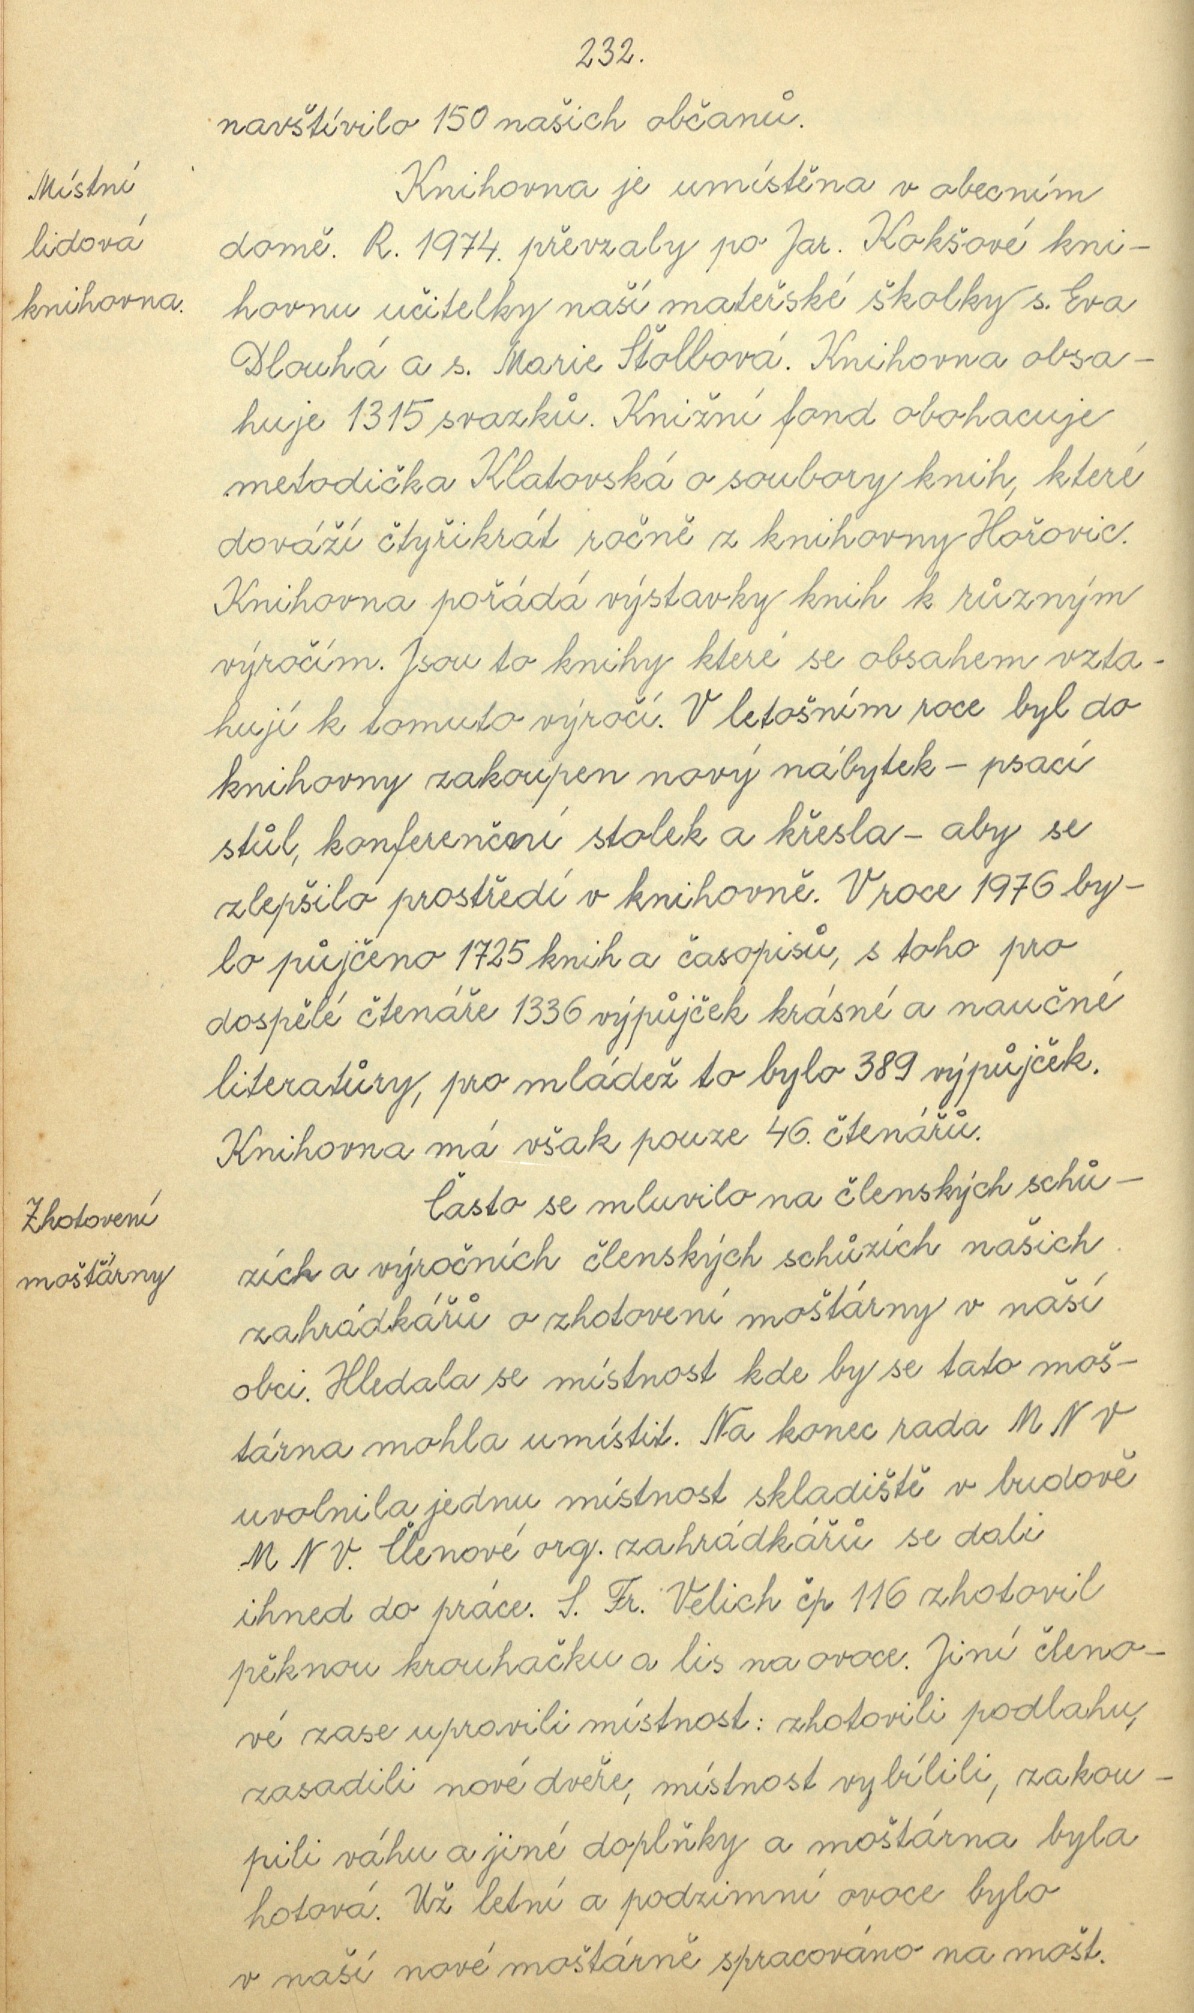 232.
navštívilo 150 našich občanů.
Místní
lidová
knihovna.
Knihovna je umístěna v obecním
domě. R. 1974. převzaly po Jar. Kokšové kni-
hovnu učitelky naší mateřské školky s. Eva
Dlouhá a s. Marie Štolbová. Knihovna obsa-
huje 1315 svazků. Knižní fond obohacuje
metodička Klatovská o soubory knih, které
dováží čtyřikrát ročně z knihovny Hořovic.
Knihovna pořádá výstavky knih k různým
výročím. Jsou to knihy které se obsahem vzta-
hují k tomuto výročí. V letošním roce byl do
knihovny zakoupen nový nábytek - psací
stůl, konferenční stolek a křesla - aby se
zlepšilo prostředí v knihovně. V roce 1976 by-
lo půjčeno 1725 knih a časopisů, s toho pro
dospělé čtenáře 1336 výpůjček krásné a naučné
literatůry, pro mládež to bylo 389 výpůjček.
Knihovna má však pouze 46. čtenářů.
Zhotovení
moštárny
Často se mluvilo na členských schů-
zích a výročních členských schůzích našich
zahrádkářů o zhotovení moštárny v naší
obci. Hledala se místnost kde by se tato moš-
tárna mohla umístit. Na konec rada M N V
uvolnila jednu místnost skladiště v budově
M N V. Členové org. zahrádkářů se dali
ihned do práce. S. Fr. Velich čp 116 zhotovil
pěknou krouhačku a lis na ovoce. Jiní členo-
vé zase upravili místnost: zhotovili podlahu,
zasadili nové dveře, místnost vybílili, zakou-
pili váhu a jiné doplňky a moštárna byla
hotová. Už letní a podzimní ovoce bylo
v naší nové moštárně spracováno na mošt.